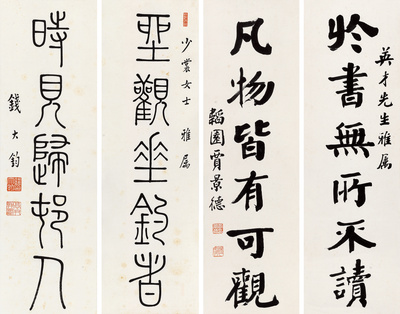 英才先生雅属
於書無所不讀
凡物皆有可觀
韜園賈景德
少裳女士 雅属
坐觀垂釣者
時見歸邨人
錢大鈞